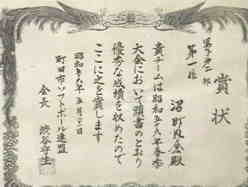 賞状
第一位
沼町内会殿
貴チームは昭和五十八年春季
大会において頭書のとおり
優秀な成績を収めたので
ここに之を賞します
昭和五十八年五月
町田市ソフトボール連盟
会長